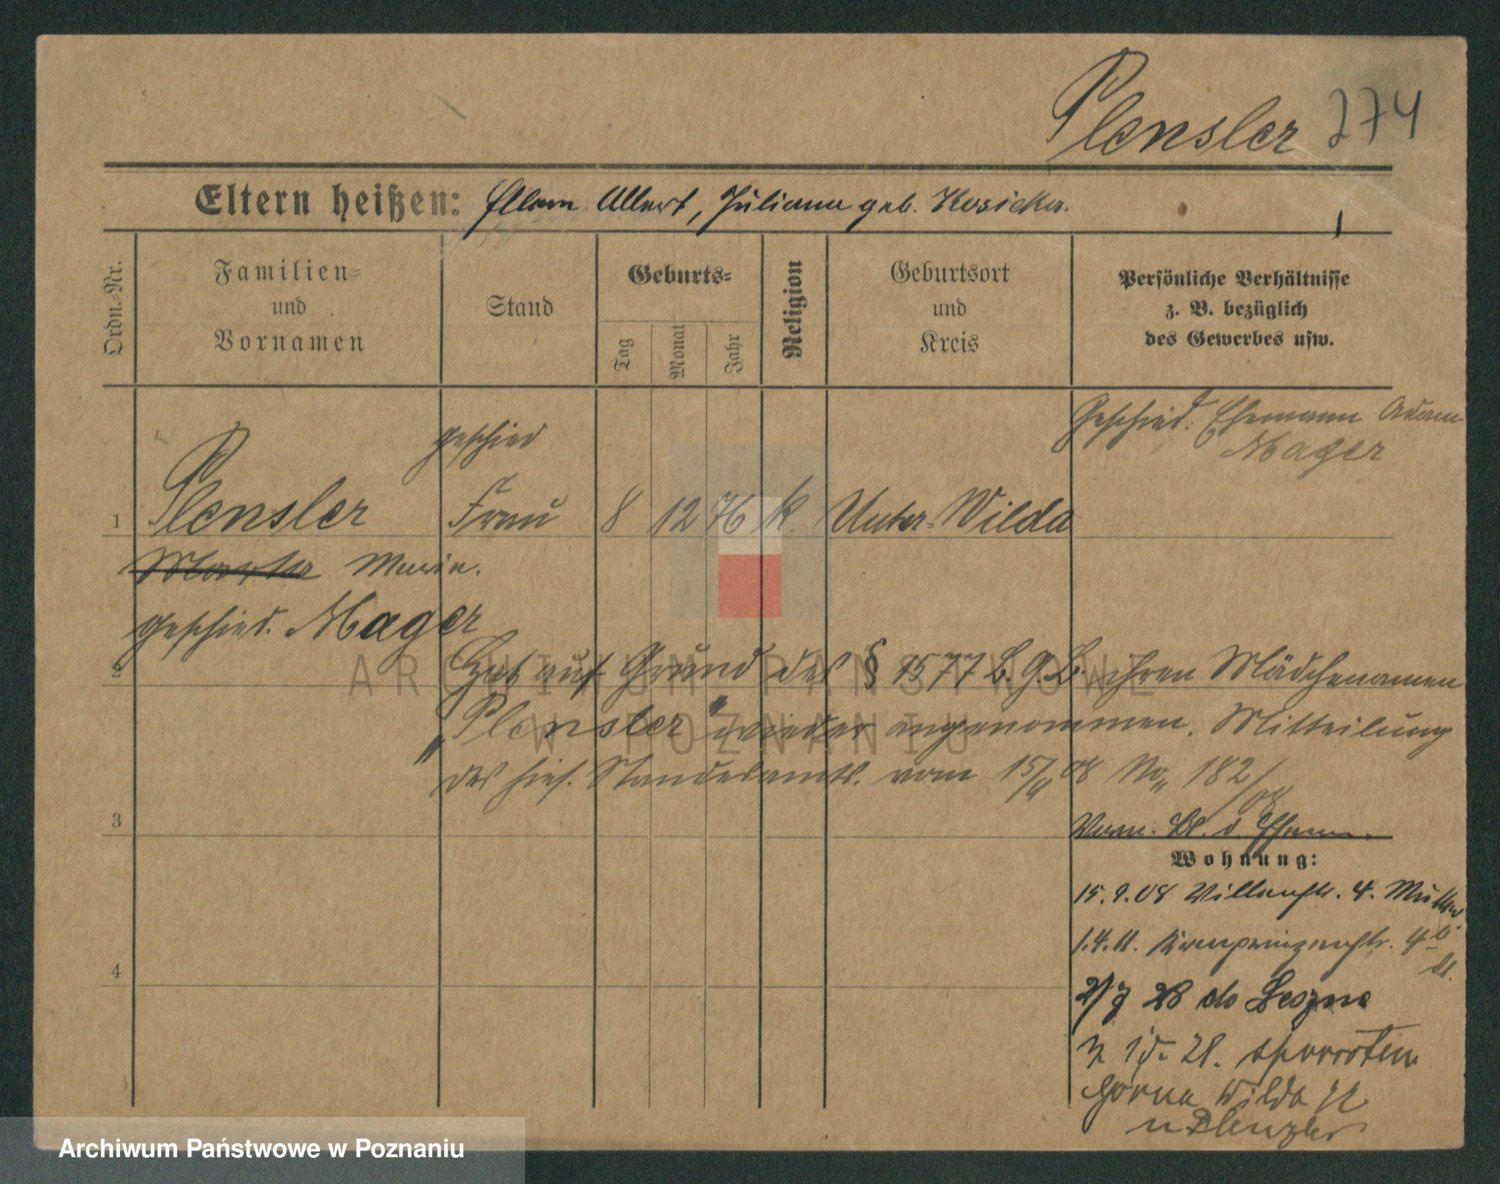 Plensler 274
Eltern heißen: Albert, Juliana geb. Kosicka.
Ordn.-Nr.
Familien-
und
Vornamen
Stand
Geburts-
Tag
Monat
Jahr
Religion
Geburtsort
und
Kreis
Persönliche Verhältnisse
z. B. bezüglich
des Gewerbes usw.
Geschied. Ehemann Adam
Mager
geschied
1 Plensler Frau 8 12 76 k. Unter-Wilda
Maria.
geschied. Mager
2 Hat auf Grund des § 1577 B.G.B. ihren Mädchenamen
"Plensler" wieder angenommen. Mitteilung
des hies. Standesamts. vom 15/9 08 No 182/08
3
Wohnung:
15.9.08 4. Mutter
1.4.11. Kronprinzenstr. 4
4
do Leszna
Gorna Wilda
u Plenzler
ARCHIWUM PAŃSTWOWE
W POZNANIU
Archiwum Państwowe w Poznaniu